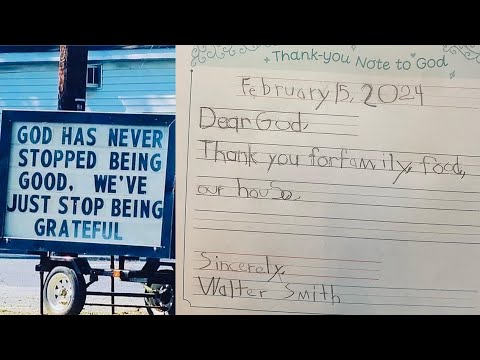 GOD HAS NEVER
STOPPED BEING
GOOD, WE'VE
JUST STOP BEING
GRATEFUL
Thank-you Note to God
February 15, 2024
Dear God,
Thank you for family, food,
our house.
Sincerely,
Walter Smith